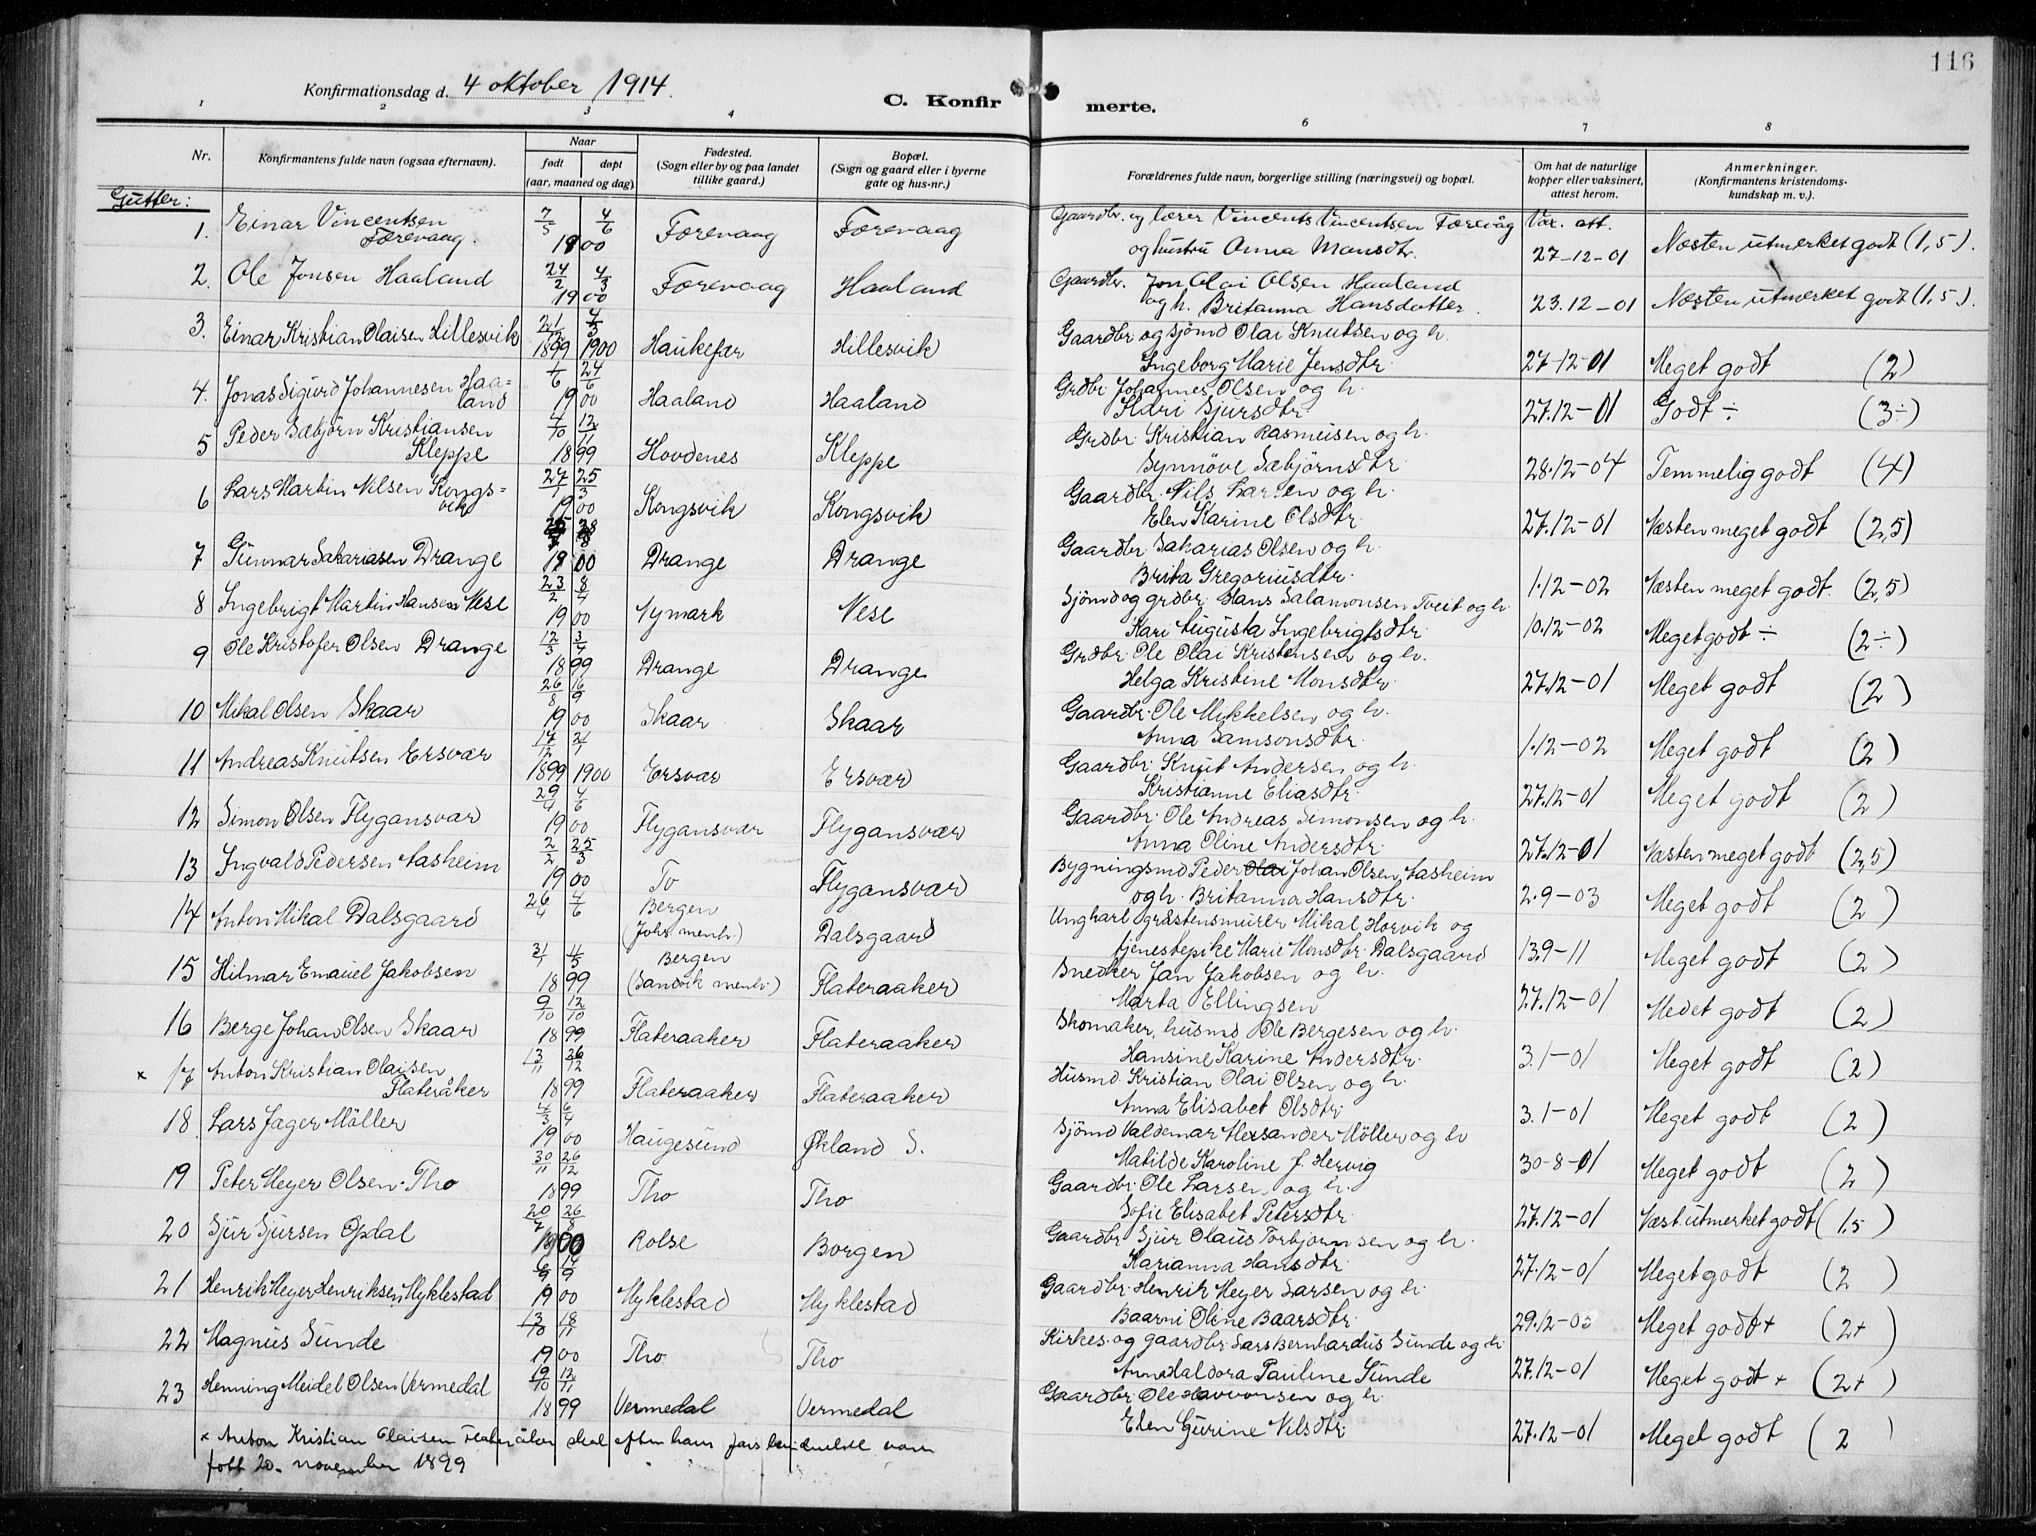 116
Konfirmationsdag d. 4 oktober 1914.
C. Konfir merte.
1 2 3 4 6 7 8
Nr. Konfirmantens fulde navn (ogsaa efternavn). Naar født døpt (aar, maaned og dag) Fødested. (Sogn eller by og paa landet tillike gaard.) Bopæl. (Sogn og gaard eller i byerne gate og hus-nr.) Forældrenes fulde navn, borgerlige stilling (næringsvei) og bopæl. Om hat de naturlige kopper eller vaksinert, attest herom. Anmerkninger. (Konfirmantens kristendoms-kundskap m. v.).
Gutter:
1. Einar Vincentsen Førevaag. 7/5 4/6 1900 Førevaag Førevaag Gaardbr. og lærer Vincents Vincentsen Førevåg Vax. att.
og hustru Anna Monsdtr. 27-12-01 Næsten utmerket godt (1,5).
2. Ole Jonsen Haaland 24/2 4/3 1900 Førevaag Haaland Gaardbr. Jon Olai Olsen Haaland
og h. Britanna Hansdatter. 23.12-01 Næsten utmerket godt (1,5).
3. Einar Kristian Olaisen Hillesvik 21/12 4/5 1899 1900 Haukefær Hillesvik Gaardbr og sjömd Olai Knutsen og h.
Ingeborg Marie Jensdtr. 27-12-01 Meget godt (2)
4. Jonas Sigurd Johannesen Haa=land 1/6 24/6 1900 Haaland Haaland Grdbr. Johannes Olsen og h.
Kari Sjursdtr. 27.12-01 Godt ÷ (3÷)
5 Peder Sæbjörn Kristiansen Kleppe 4/10 12/11 1899 Hovdenes Kleppe Grdbr. Kristian Rasmussen og h.
Synnöve Sæbjörnsdtr. 28.12-04 Temmelig godt (4)
6 Lars Martin Nilsen Kongs=vik 27/1 25/3 1900 Kongsvik Kongsvik Gaardbr. Nils Larsen og h.
Elen Karine Olsdtr. 27.12-01 Næsten meget godt (2,5)
7 Gunnar Sakariasen Drange 1900 Drange Drange Gaardbr. Sakarias Olsen og h.
Brita Gregoriusdtr. 1.12-02 Næsten meget godt. (2,5)
8 Ingebrigt Martin Hansen Nese 23/2 8/4 1900 Nymark Nese Sjömd og grdbr. Hans Salamonsen Tveit og h.
Kari Augusta Ingebrigtsdtr. 10.12-02 Meget godt ÷ (2÷)
9 Ole Kristofer Olsen Drange 12/3 3/4 1899 Drange Drange Grdbr. Ole Olai Kristensen og h.
Helga Kristine Monsdtr. 27.12-01 Meget godt (2)
10 Mikal Olsen Skaar 26/8 16/9 1900 Skaar Skaar Gaardbr. Ole Mikkelsen og h.
Anna Samsonsdtr. 1.12-02 Meget godt (2)
11 Andreas Knutsen Ersvær 17/12 21/1 1899 1900 Ersvær Ersvær Gaardbr. Knut Andersen og h.
Kristianne Eliasdtr. 27.12-01 Meget godt (2)
12 Simon Olsen Flygansvær 29/4 4/6 1900 Flygansvær Flygansvær Gaardbr. Ole Andreas Simonsen og h.
Anna Oline Andersdtr. 27.12-01 Næsten meget godt (2,5)
13 Ingvald Pedersen Aasheim 2/2 25/3 1900 To Flygansvær Bygningsmd Peder Olai Johan Olsen Aasheim
og h. Britanna Hansdtr. 2.9-03 Meget godt (2)
14 Anton Mikal Dalsgaard 26/4 4/6 Bergen (Johs menh.) Dalsgaard Ungkarl gråstensmurer Mikal Horvik og
tjenestepike Marie Monsdtr. Dalsgaard 13.9-11 Meget godt (2)
15 Hilmar Emauel Jakobsen 31/1 4/5 1899 Bergen (Sandvik menh.) Flateraaker Snedker Jan Jakobsen og h.
Marta Ellingsen 27.12-01 Medet godt (2)
16 Berge Johan Olsen Skaar 9/10 12/10 1899 Flateraaker Flateraaker Skomaker, husmd Ole Bergesen og h.
Hansine Karine Andersdtr. 3.1-01 Meget godt (2)
× 17 Anton Kristian Olaisen Flateråker 13/11 26/12 1899 Flateraaker Flateraaker Husmd. Kristian Olai Olsen og h.
Anna Elisabet Olsdtr. 3.1-01 Meget godt (2)
18 Lars Jager Möller 4/3 6/4 1900 Haugesund Økland S. Sjömd Valdemar Alexander Möller og h
Matilde Karoline J. Hervig 30-8-01 Meget godt (2)
19 Peter Meyer Olsen Tho 30/11 26/12 1899 Tho Tho Gaardbr. Ole Larsen og h.
Sofie Elisabet Petersdtr. 27.12-01 Næst. utmerket godt (1.5)
20 Sjur Sjursen Opdal 20/7 26/8 1900 Rolse Borgen Gaardbr Sjur Olaus Torbjornsen og h.
Karianna Hansdtr. 27.12-01 Meget godt (2)
21 Henrik Meyer Henriksen Myklestad 1900 Myklestad Myklestad Gaardbr. Henrik Meyer Larsen og h.
Baarni Oline Baarsdtr. 29.12-03 Meget godt+ (2+)
22 Magnus Sunde 13/10 18/11 1900 Tho Tho Kirkes. og gaardbr. Lars Bernhardus Sunde og h
Anna Haldora Pauline Sunde 27.12-01 Meget godt + (2+)
23 Henning Meidel Olsen Vermedal 19/10 12/11 1899 Vermedal Vermedal Gaardbr. Ole og h.
Elen Gurine Nilsdtr 27.12-01 Meget godt (2
× Anton Kristian Olaisen Flateråker skal efter hans fars være
født 20. november 1899